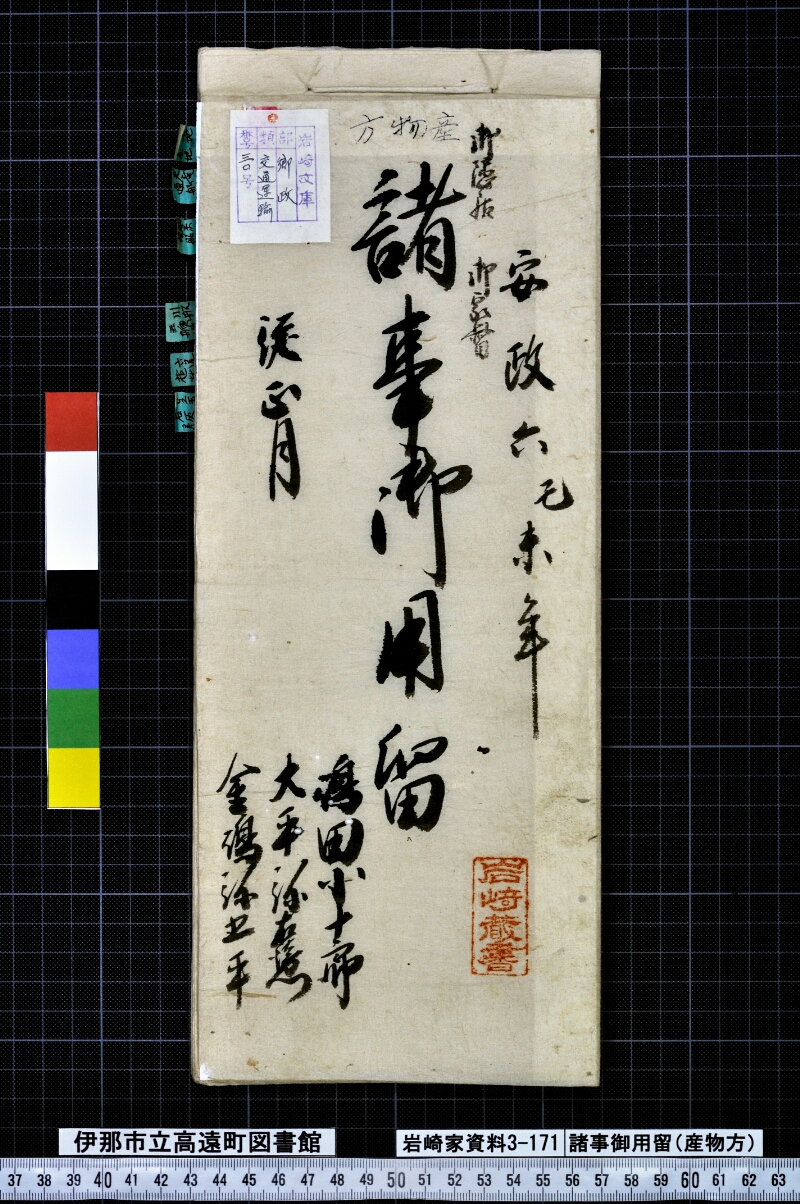 安政六己未年
御隠居 御家督
産物方
諸事御用留
従正月
嶋田小十郎
大平弥右衛
金鴻弥五平
岩崎文庫
部 郷政
類 交通運輸
號 三〇号
岩崎蔵書
伊那市立高遠町図書館
岩崎家資料3-171
諸事御用留(産物方)
37 38 39 40 41 42 43 44 45 46 47 48 49 50 51 52 53 54 55 56 57 58 59 60 61 62 63